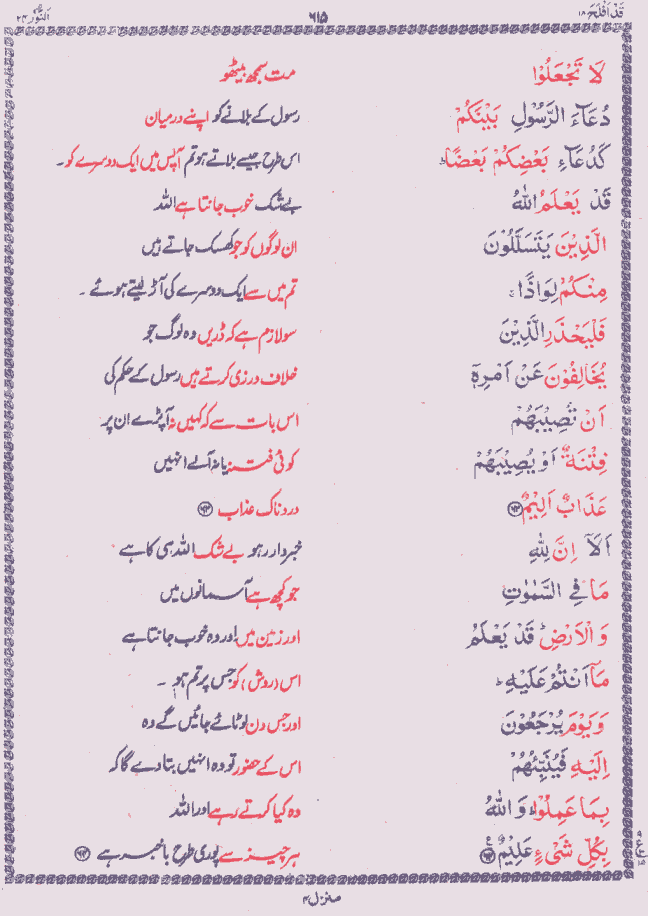 قَدْ اَفْلَحَ ۱۸ ۶۱۵ اَلنُّوْر ۲۴
لَا تَجْعَلُوْا مت سمجھ بیٹھو
دُعَآءَ الرَّسُوْلِ بَيْنَكُمْ رسول کے بلانے کو اپنے درمیان
كَدُعَآءِ بَعْضِكُمْ بَعْضًا ؕ اس طرح جیسے بلاتے ہو تم آپس میں ایک دوسرے کو۔
قَدْ يَعْلَمُ اللّٰهُ بے شک خوب جانتا ہے اللہ
الَّذِيْنَ يَتَسَلَّلُوْنَ ان لوگوں کو جو کھسک جاتے ہیں
مِنْكُمْ لِوَاذًا ۚ تم میں سے ایک دوسرے کی آڑ لیتے ہوئے۔
فَلْيَحْذَرِ الَّذِيْنَ سو لازم ہے کہ ڈریں وہ لوگ جو
يُخَالِفُوْنَ عَنْ اَمْرِهٖۤ خلاف ورزی کرتے ہیں رسول کے حکم کی
اَنْ تُصِيْبَهُمْ اس بات سے کہ کہیں نہ آپڑے ان پر
فِتْنَةٌ اَوْ يُصِيْبَهُمْ کوئی فتنہ یا نہ آلے انہیں
عَذَابٌ اَلِيْمٌ ۶۳ دردناک عذاب ۶۳
اَلَآ اِنَّ لِلّٰهِ خبردار رہو بے شک اللہ ہی کا ہے
مَا فِي السَّمٰوٰتِ جو کچھ ہے آسمانوں میں
وَ الْاَرْضِ ؕ قَدْ يَعْلَمُ اور زمین میں اور وہ خوب جانتا ہے
مَآ اَنْتُمْ عَلَيْهِ ؕ اس (روش) کو جس پر تم ہو۔
وَ يَوْمَ يُرْجَعُوْنَ اور جس دن لوٹائے جائیں گے وہ
اِلَيْهِ فَيُنَبِّئُهُمْ اس کے حضور تو وہ انہیں بتادے گا کہ
بِمَا عَمِلُوْا ؕ وَ اللّٰهُ وہ کیا کرتے رہے اور اللہ
بِكُلِّ شَيْءٍ عَلِيْمٌ ۶۴ ہر چیز سے پوری طرح باخبر ہے ۶۴
منزل ۴